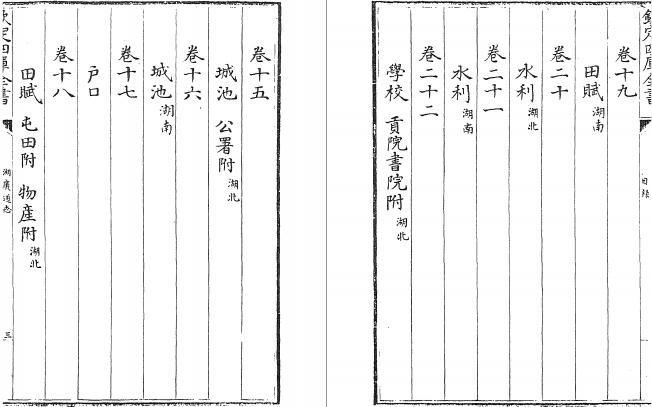 卷十五
城池 公署附 湖北
卷十六
城池 湖南
卷十七
户口
卷十八
田賦 屯田附 物産附 湖北
欽定四庫全書 湖廣通志 三
欽定四庫全書 目錄
卷十九
田賦 湖南
卷二十
水利 湖北
卷二十一
水利 湖南
卷二十二
學校 貢院書院附 湖北